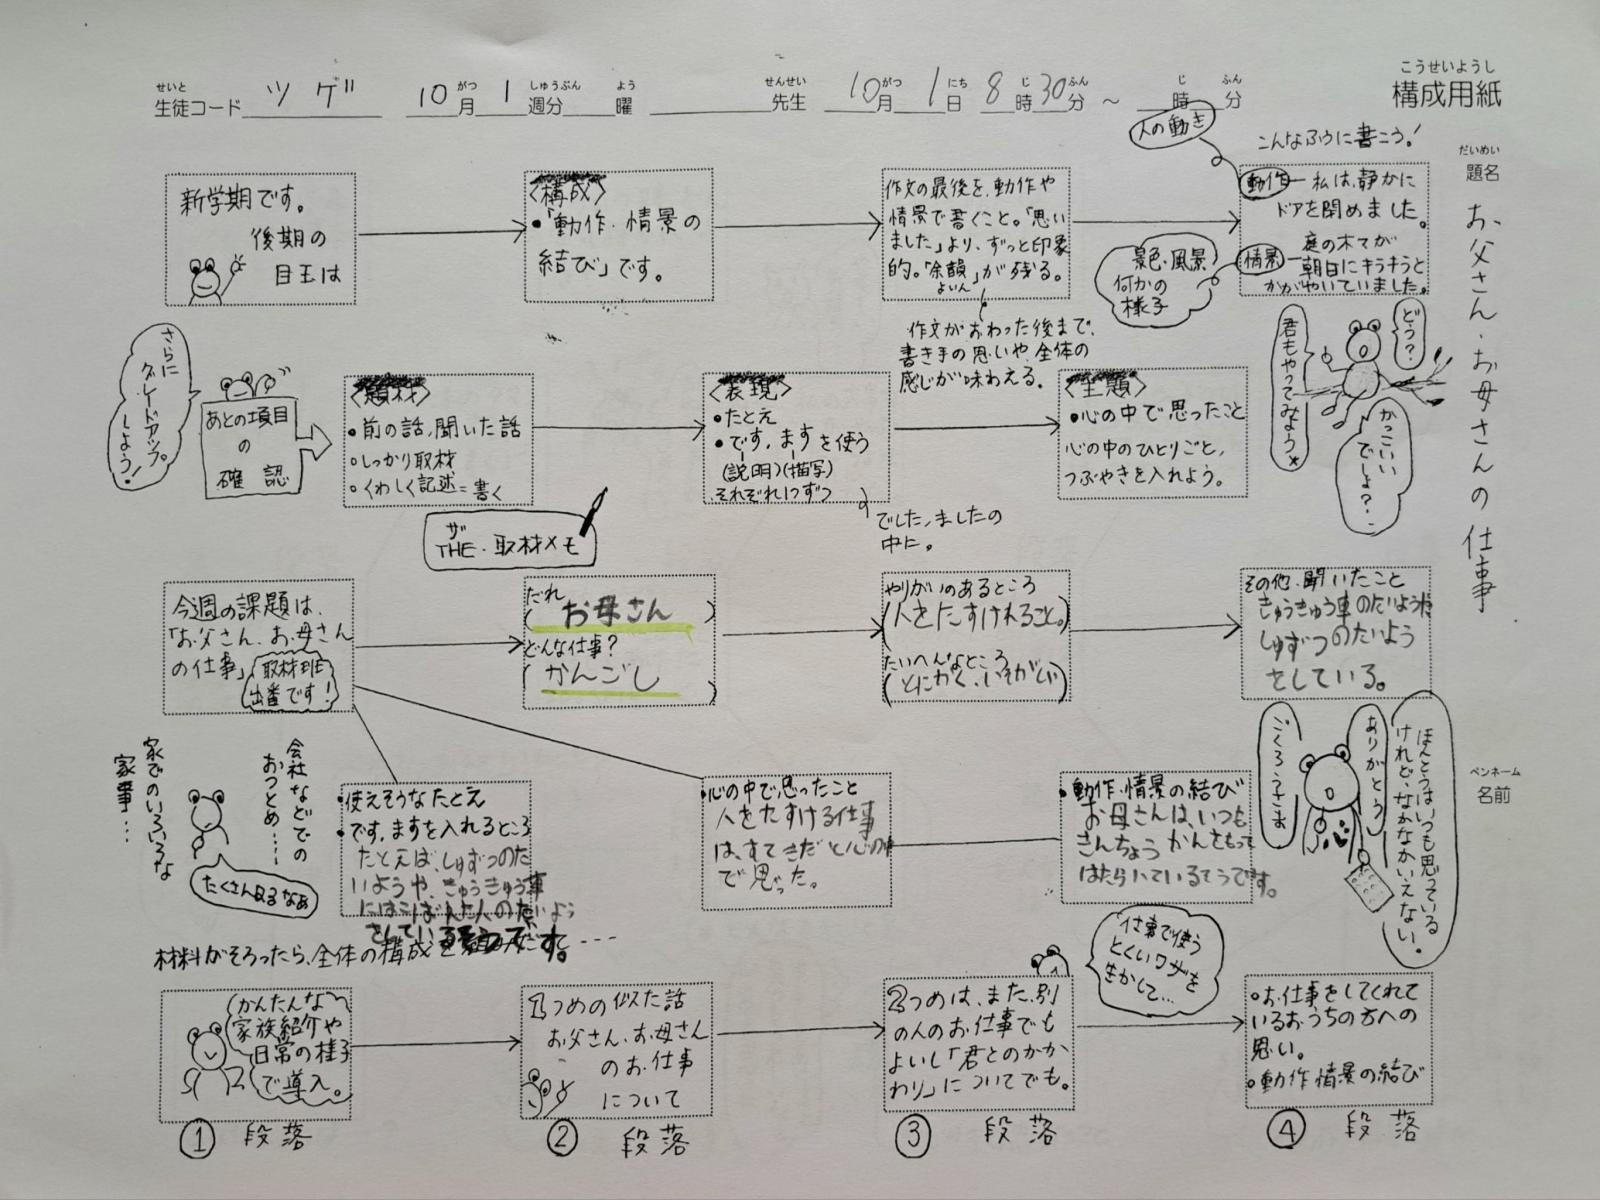 こうせいようし
構成用紙
せいと
生徒コード ツゲ 10月 1週分 曜 先生 10月 1日 8時30分 ～ 時 分
がつ しゅうぶん よう せんせい がつ にち じ ふん じ ふん
だいめい
題名
お父さん・お母さんの仕事
ペンネーム
名前
新学期です。
後期の
目玉は
〈構成〉
・「動作・情景の
結び」です。
作文の最後を、動作や
情景で書くこと。「思い
ました」より、ずっと印象
的。「余韻」が残る。
よいん
作文がおわった後まで、
書き手の思いや、全体の
感じが味わえる。
人の動き
こんなふうに書こう！
動作―私は、静かに
ドアを閉めました。
情景―庭の木々が
朝日にキラキラと
かがやいていました。
景色・風景
何かの
様子
どう？
君もやってみよう
かっこいい
でしょ？
さらに
グレードアップ
しよう！
あとの項目
の
確認
〈題材〉
・前の話、聞いた話
・しっかり取材
・くわしく記述＝書く
ザ
THE・取材メモ
〈表現〉
・たとえ
・です、ますを使う
(説明)(描写)
それぞれ1つずつ
でした、ましたの
中に。
〈主題〉
・心の中で思ったこと
心の中のひとりごと、
つぶやきを入れよう。
今週の課題は、
「お父さん、お母さん
の仕事」
取材班
出番です！
だれ
(お母さん)
どんな仕事？
(かんごし)
やりがいのあるところ
(人をたすけれること。)
たいへんなところ
(とにかく、いそがしい)
その他、聞いたこと
きゅうきゅう車のたいようや
しゅずつのたいよう
をしている。
会社などでの
おつとめ……
家でのいろいろな
家事…
たくさんあるなあ
・使えそうなたとえ
・です、ますを入れるところ
たとえば、しゅずつのた
いようや、きゅうきゅう車
にはこばれた人のたいよう
をしているそうです。
・心の中で思ったこと
人をたすける仕事
は、すてきだと心の中
で思った。
・動作・情景の結び
お母さんは、いつも
きんちょうかんをもって
はたらいているそうです。
ほんとうはいつも思っている
けれど、なかなかいえない。
ありがとう
ごくろうさま
材料がそろったら、全体の構成を
かんたんな
家族紹介や
日常の様子
で導入。
① 段落
1つめの似た話
お父さん、お母さん
のお仕事
について
② 段落
2つめは、また、別
の人のお仕事でも
よいし「君とのかか
わり」についてでも。
③ 段落
仕事で使う
とくいワザを
生かして…
・お仕事をしてくれて
いるおうちの方への
思い。
・動作・情景の結び
④ 段落